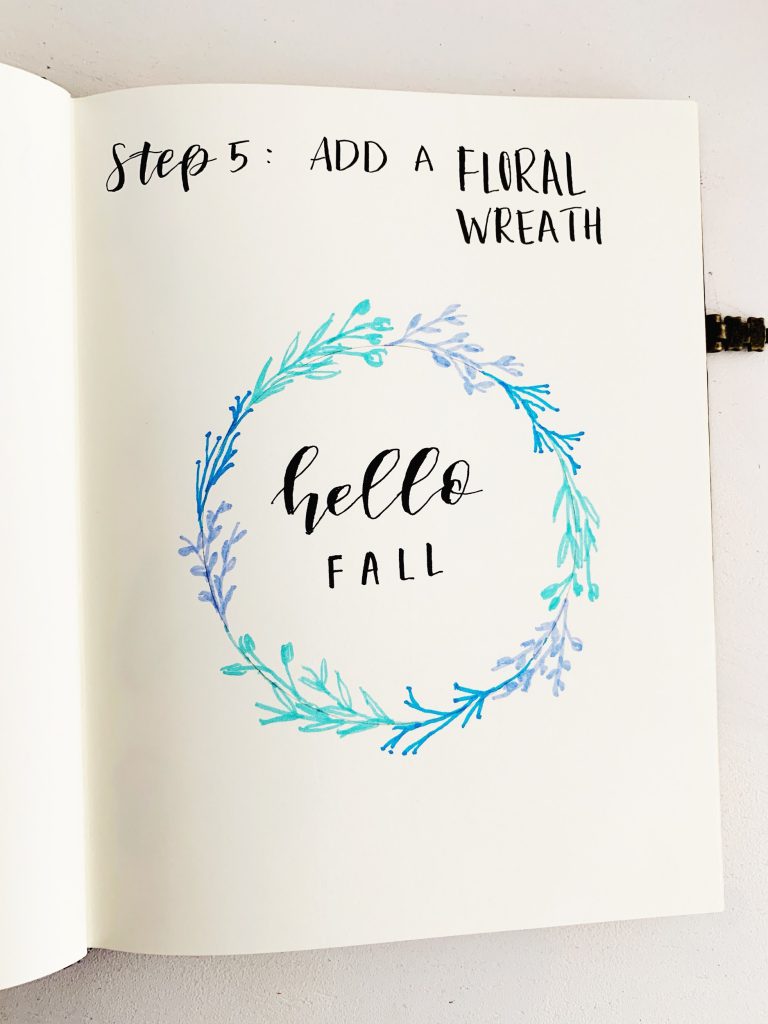 Step 5: ADD A FLORAL
WREATH
hello
FALL